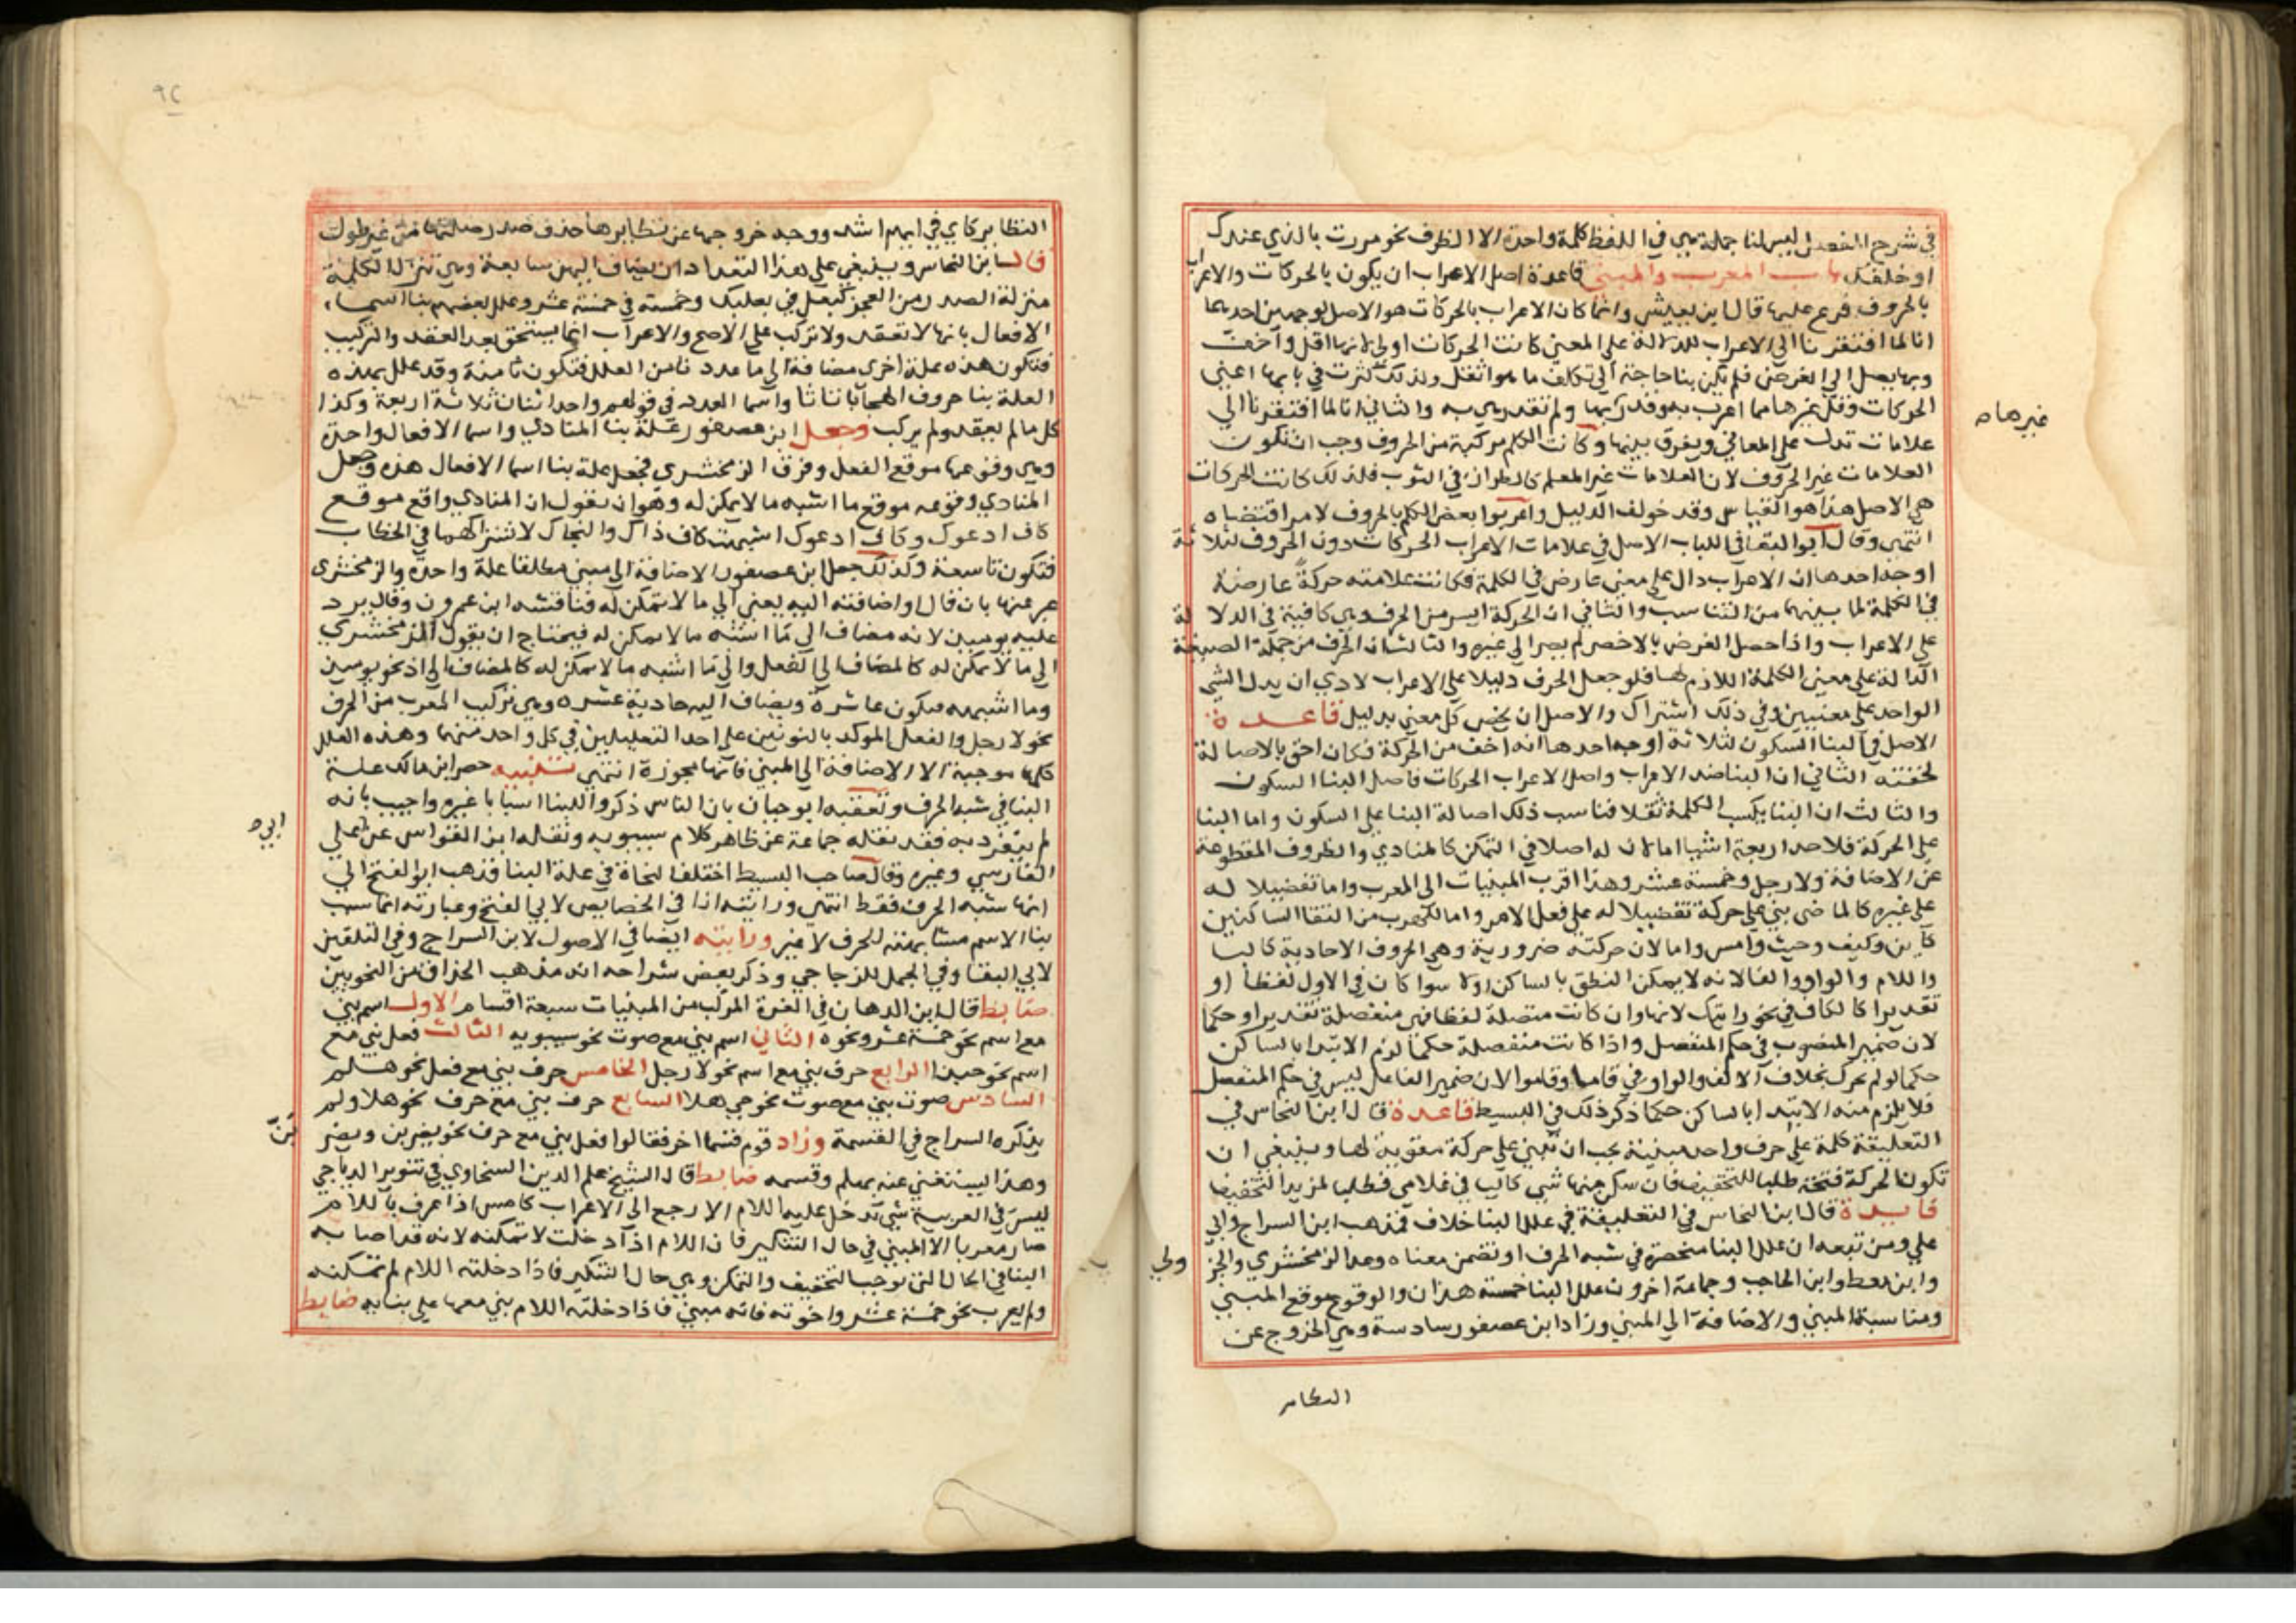 في شرح المفصل ليس لنا جملة هي في اللفظ كلمة واحدة الا الظرف نحو مررت بالذي عندك
او خلفك باب المعرب والمبني قاعدة اصل الاعراب ان يكون بالحركات والاعراب
بالحروف فرع عليها قال ابن يعيش وانما كان الاعراب بالحركات هو الاصل لوجهين احدهما
انا لما افتقرنا الى الاعراب للدلالة على المعنى كانت الحركات اولى لانها اقل واخف
وبها يصل الى الغرض فلم يكن بنا حاجة الى تكلف ما هو اثقل ولذلك كثرت في بابها اعني
الحركات وقل غيرها مما اعرب به وقدر بها ولم تقدر هي به والثاني انا لما افتقرنا الى
غيرها ه
علامات تدل على المعاني ويفرق بينها وكانت الكلم مركبة من الحروف وجب ان تكون
العلامات غير الحروف لان العلامات غير المعلم كالطراز في الثوب فلذلك كانت الحركات
هي الاصل هذا هو القياس وقد خولف الدليل واعربوا بعض الكلم بالحروف لامر اقتضاه
انتهى وقال ابو البقا في اللباب الاصل في علامات الاعراب الحركات دون الحروف لثلاثة
اوجه احدها ان الاعراب دال على معنى عارض في الكلمة فكانت علامته حركةً عارضة
في الكلمة لما بينهما من التناسب والثاني ان الحركة ايسر من الحرف وهي كافية في الدلالة
على الاعراب واذا حصل الغرض بالاخصر لم يصر الى غيره والثالث ان الحرف من جملة الصيغة
الدالة على معنى الكلمة اللازم لها فلو جعل الحرف دليلا على الاعراب لادي ان يدل الشي
الواحد على معنيين وفي ذلك اشتراك والاصل ان يخص كل معنى بدليل قاعدة
الاصل في البنا السكون لثلاثة اوجه احدها انه اخف من الحركة فكان احق بالاصالة
لخفته الثاني ان البنا ضد الاعراب واصل الاعراب الحركات فاصل البنا السكون
والثالث ان البنا يكسب الكلمة ثقلا فناسب ذلك اصالة البنا على السكون واما البنا
على الحركة فلاحد اربعة اشيا اما لان له اصلا في التمكن كالمنادي والظروف المقطوعة
عن الاضافة ولا رجل وخمسة عشر وهذا اقرب المبنيات الى المعرب واما تفضيلا له
على غيره كالماضي بني على حركة تفضيلا له على فعل الامر واما للهرب من التقا الساكنين
كاين وكيف وحيث وامس واما لان حركته ضرورية وهي الحروف الاحادية كالبا
واللام والواو والفا لانه لا يمكن النطق بالساكن اولا سوا كان في الاول لفظا او
تقديرا كالكاف في نحو رايتك لانها وان كانت متصلة لفظا فهي منفصلة تقديرا وحكما
لان ضمير المنصوب في حكم المنفصل واذا كانت منفصلة حكما لزم الابتدا بالساكن
حكما لو لم تحرك بخلاف الالف والواو في قاما وقاموا لان ضمير الفاعل ليس في حكم المنفصل
فلا يلزم منه الابتدا بالساكن حكما ذكر ذلك في البسيط قاعدة قال ابن النحاس في
التعليقة كلمة على حرف واحد مبنية يجب ان تبنى على حركة مقوية لها وينبغي ان
تكون الحركة فتحة طلبا للتخفيف فان سكن منها شي كاليا في غلامي فطلبا لمزيد التخفيف
فايدة قال ابن النحاس في التعليقة في علل البنا خلاف فمذهب ابن السراج وابي
علي ومن تبعه ان علل البنا منحصرة في شبه الحرف او تضمن معناه وعد الزمخشري والجزولي
وابن معط وابن الحاجب وجماعة اخرون علل البنا خمسة هذان والوقوع موقع المبني
ومناسبة المبني والاضافة الى المبني وزاد ابن عصفور سادسة وهي الخروج عن
النظاير
٩٤
النظاير كاي في ايهم اشد ووجه خروجها عن نظايرها حذف صدر صلتها من غير طول
قال ابن النحاس وينبغي على هذا التعداد ان يضاف اليهن سابعة وهي تنزل الكلمة
منزلة الصدر من العجز كبعل في بعلبك وخمسة في خمسة عشر وعلل بعضهم بنا اسما
الافعال بانها لا تعقد ولا تركب على الاصح والاعراب انما يستحق بعد العقد والتركيب
فتكون هذه علة اخرى مضافة الى ما عددنا من العلل فتكون ثامنة وقد علل بهذه
العلة بنا حروف الهجا با تا ثا واسما العدد في قولهم واحد اثنان ثلاثة اربعة وكذا
كل ما لم يعقد ولم يركب وجعل ابن عصفور علة بنا المنادي واسما الافعال واحدة
وهي وقوعها موقع الفعل وفرق الزمخشري فجعل علة بنا اسما الافعال هذه وجعل
المنادي وقوعه موقع ما اشبه ما لا يمكن له وهو ان يقول ان المنادي واقع موقع
كاف ادعوك وكاف ادعوك اشبهت كاف ذاك والنجاك لاشتراكهما في الخطاب
فتكون تاسعة وكذلك جعل ابن عصفور الاضافة الى مبني مطلقا علة واحدة والزمخشري
عبر عنها بان قال او اضافته اليه يعني الى ما لا تمكن له فناقشه ابن عمرون وقال يرد
عليه يومين لانه مضاف الى ما اشبه ما لا يمكن له فيحتاج ان يقول الزمخشري
الى ما لا تمكن له كالمضاف الى الفعل والى ما اشبه ما لا تمكن له كالمضاف الى اذ نحو يومين
وما اشبهه فيكون عاشرة ويضاف اليه حادية عشرة وهي تركيب المعرب من الحرف
نحو لا رجل والفعل الموكد بالنونين على احد التعليلين في كل واحد منهما وهذه العلل
كلها موجبة الا الاضافة الى المبني فانها مجوزة انتهى تنبيه حصر ابن مالك علة
البنا في شبه الحرف وتعقبه ابو حيان بان الناس ذكروا للبنا اسبابا غيره واجيب بانه
لم يتفرد به فقد نقله جماعة عن ظاهر كلام سيبويه ونقله ابن القواس عن علي
ابي ه
الفارسي وغيره وقال صاحب البسيط اختلف النحاة في علة البنا فذهب ابو الفتح الى
انها شبه الحرف فقط انتهى ورايته انا في الخصايص لابي الفتح وعبارته انما سبب
بنا الاسم مشابهته للحرف لا غير ورايته ايضا في الاصول لابن السراج وفي التلقين
لابي البقا وفي الجمل للزجاجي وذكر بعض شراحه انه مذهب الحذاق من النحويين
ضابط قال ابن الدهان في الغرة المركب من المبنيات سبعة اقسام الاول اسم بني
مع اسم نحو خمسة عشر ونحوه الثاني اسم بني مع صوت نحو سيبويه الثالث فعل بني مع
اسم نحو حبذا الرابع حرف بني مع اسم نحو لا رجل الخامس حرف بني مع فعل نحو هلم
السادس صوت بني مع صوت نحو حي هلا السابع حرف بني مع حرف نحو هلا ولم
يذكره السراج في القسمة وزاد قوم قسما اخر فقالوا فعل بني مع حرف نحو يضربن ويضر
بنّ
وهذا يستغني عنه بهلم وقسمه ضابط قال الشيخ علم الدين السخاوي في تنوير الدياجي
ليس في العربية شي تدخل عليه اللام الا رجع الى الاعراب كامس اذا عرف باللام
صار معربا الا المبني في حال التنكير فان اللام اذا دخلت لا تمكنه لانه قد اصابه
البنا في الحال التي توجب التخفيف والتمكن وهي حال التنكير فاذا دخلته اللام لم تمكنه
ولم يعرب نحو خمسة عشر واخوته فانه مبني فاذا دخلته اللام بني معها على بنايه ضابط